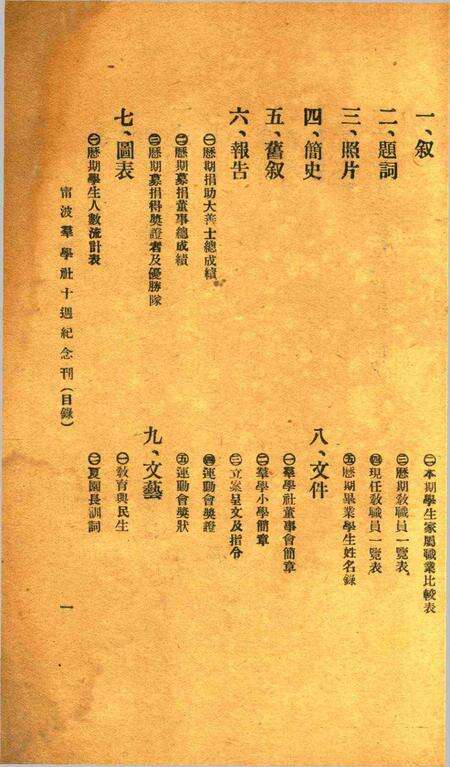 一、叙
二、題詞
三、照片
四、簡史
五、舊叙
六、報告
㊀歷期捐助大善士總成績
㊁歷期募捐董事總成績
㊂歷期募捐得獎證者及優勝隊
七、圖表
㊀歷期學生人數統計表
㊁本期學生家屬職業比較表
㊂歷期教職員一覽表
㊃現任教職員一覽表
㊄歷期畢業學生姓名錄
八、文件
㊀羣學社董事會簡章
㊁羣學小學簡章
㊂立案呈文及指令
㊃運動會獎證
㊄運動會獎狀
九、文藝
㊀教育與民生
㊁夏園長訓詞
甯波羣學社十週紀念刊(目錄)
一